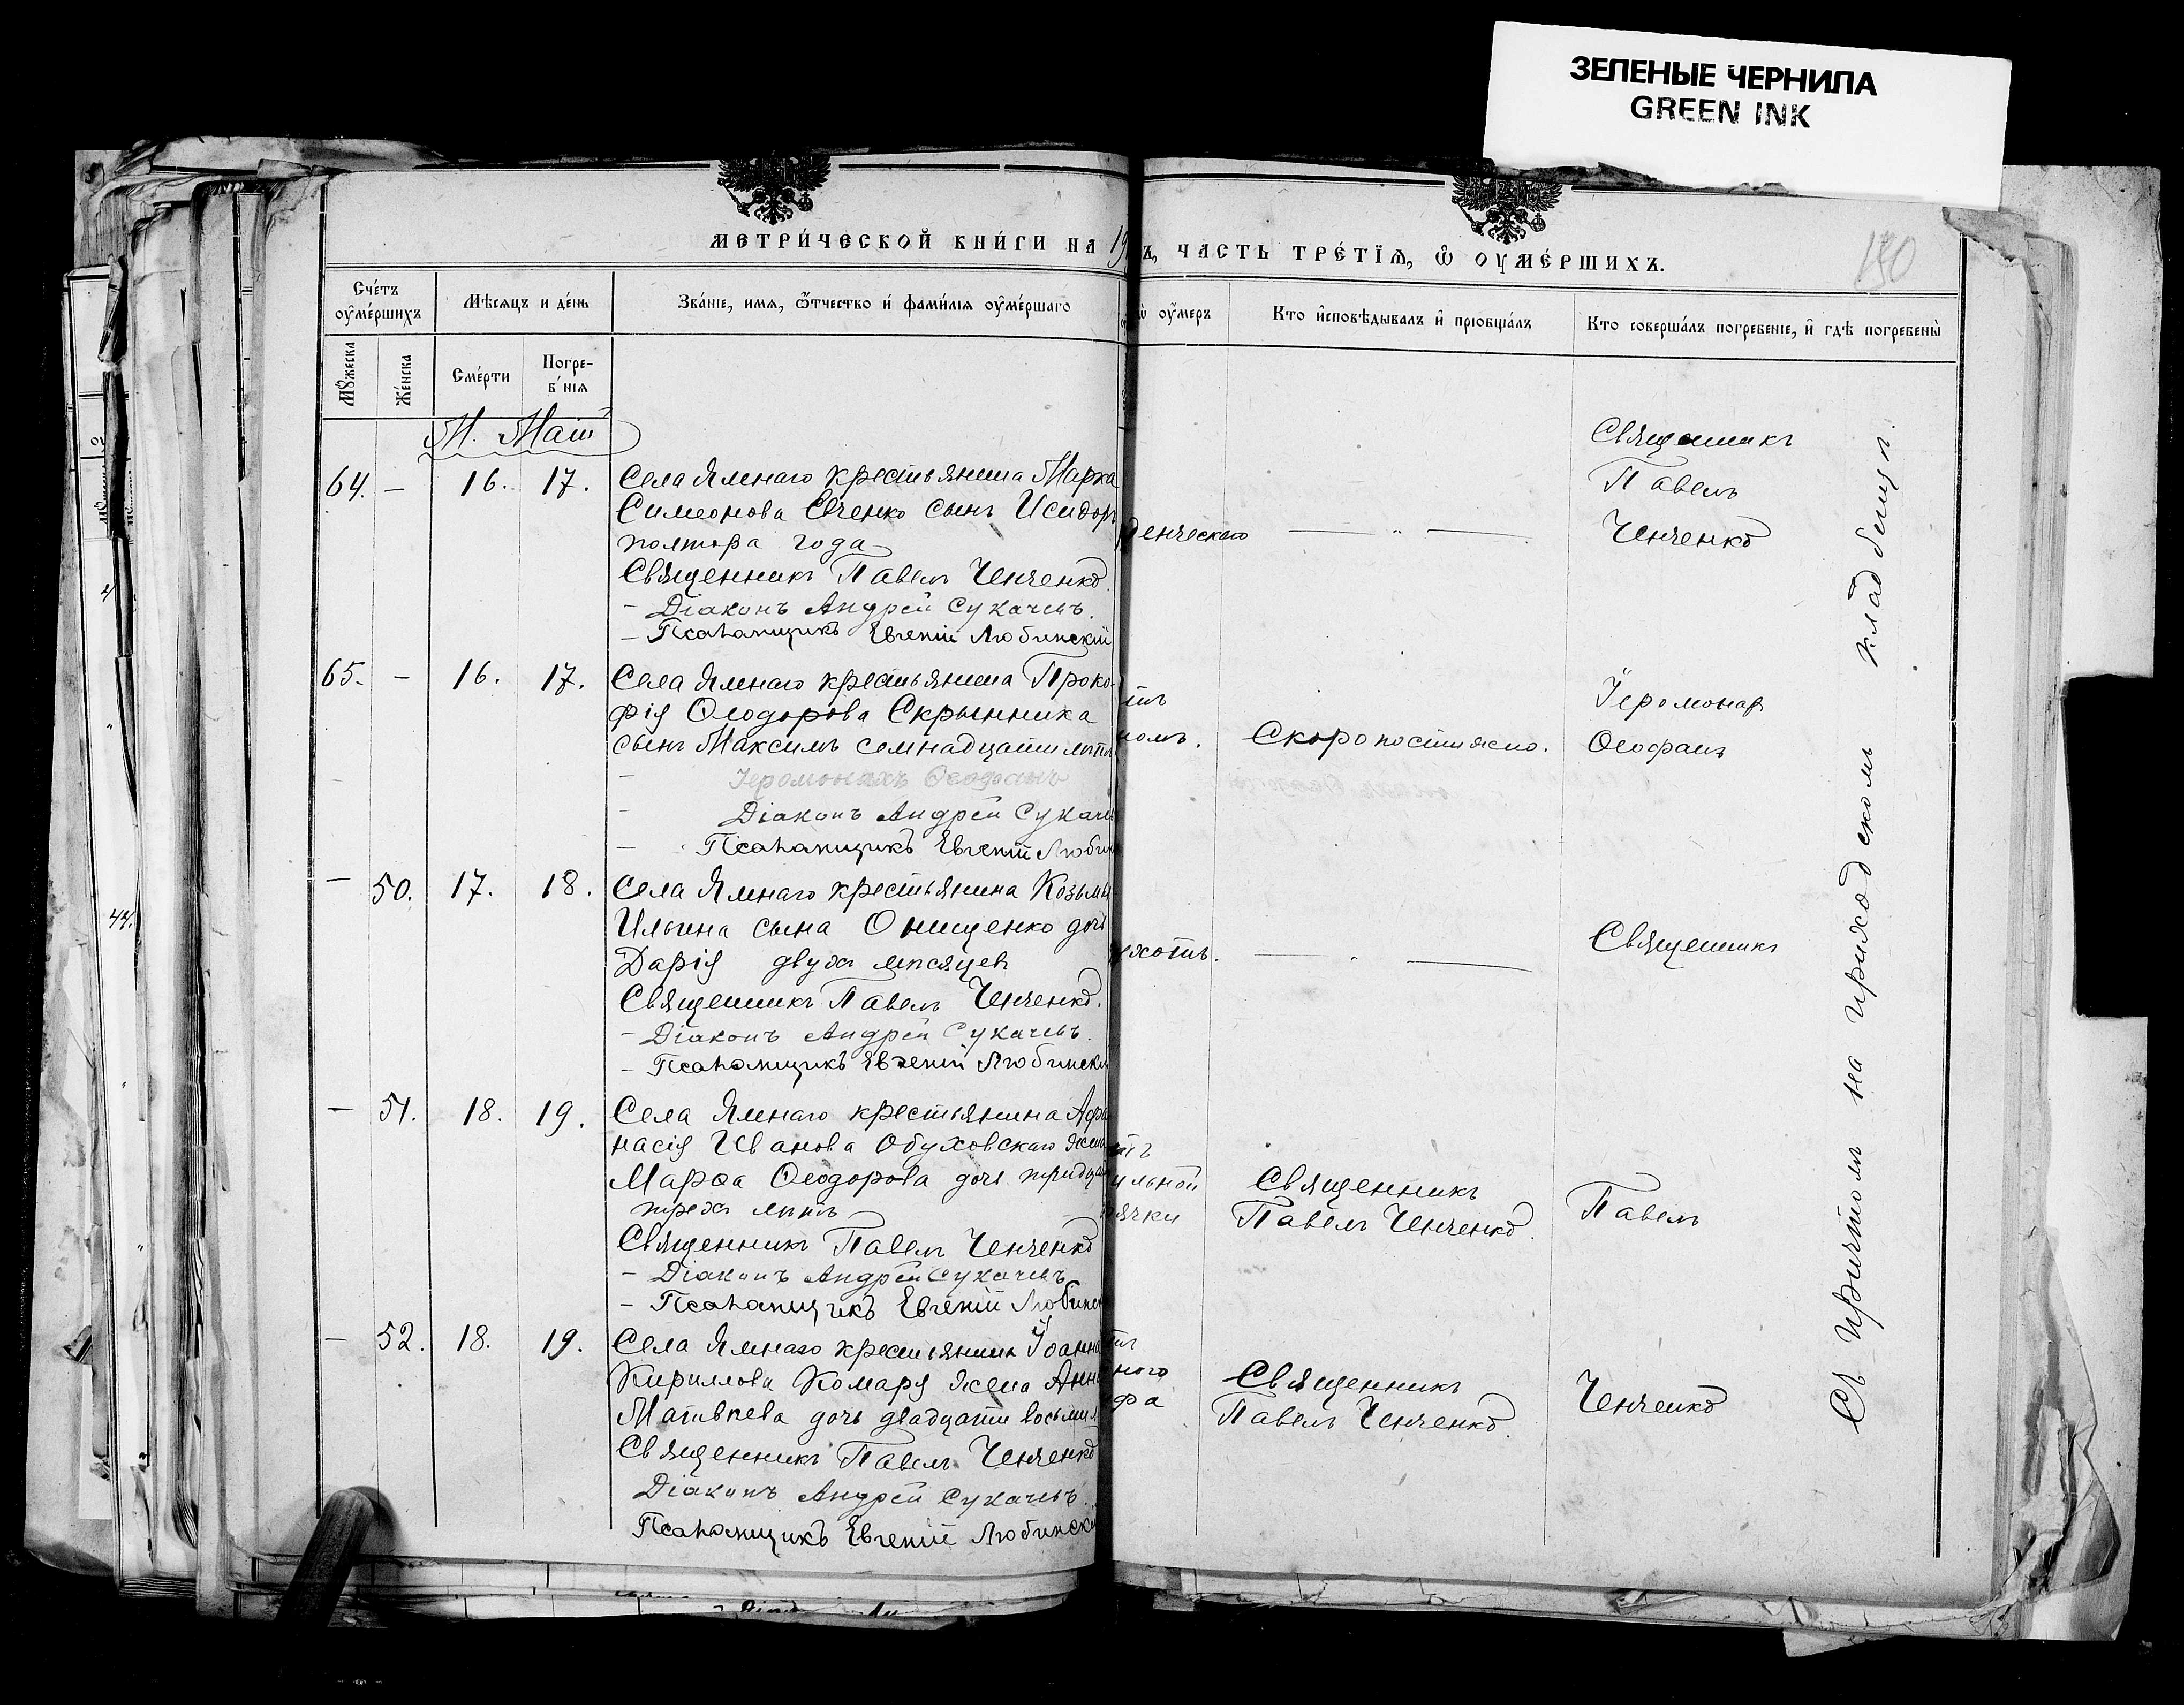 ЗЕЛЕНЫЕ ЧЕРНИЛА
GREEN INK
МЕТРИ́ЧЕСКОЙ КНИ́ГИ НА 19
Ъ, ЧАСТЬ ТРЕ́ТЇѦ, Ѽ ОУМЕ́РШИХЪ.
Сче́тъ оуме́ршихъ
Мѣсяцъ и де́нь
Зва́нїе, имя, ѿтчество и́ фами́лїя оуме́ршаго
оумеръ
Кто и́сповѣ́дывалъ и҆ прїобща́лъ
Кто соверша́лъ погребенїе, и҆ гдѣ погребены̀
Мꙋжеска
Же́нска
Сме́рти
Погре-
б́нїя
М. Маій
64. — 16. 17. Села Ямнаго крестьянина Марка
Симеонова Евченко сынъ Исидоръ
полтора года
Священникъ Павелъ Ченченко.
— Діаконъ Андрей Сукачевъ.
— Псаломщикъ Евгеній Любинскій
денческаго — „ —
Священникъ
Павелъ
Ченченко
65. — 16. 17. Села Ямнаго крестьянина Проко-
фія Ѳеодорова Скрынника
сынъ Максимъ семнадцати лѣтъ
— Іеромонахъ Ѳеофанъ
— Діаконъ Андрей Сукачев
— Псаломщикъ Евгеній Любин
номъ. Скоропостижно.
Іеромонах
Ѳеофанъ
— 50. 17. 18. Села Ямнаго крестьянина Козьмы
Ильина сына Онищенко дочь
Дарія двухъ мѣсяцевъ
Священникъ Павелъ Ченченко.
— Діаконъ Андрей Сукачевъ.
— Псаломщикъ Евгеній Любински
хоты. — „ —
Священникъ
— 51. 18. 19. Села Ямнаго крестьянина Афа
насія Иванова Обуховскаго жена
Марѳа Ѳеодорова дочь тридцати
трехъ лѣтъ —
Священникъ Павелъ Ченченко
— Діаконъ Андрей Сукачевъ
— Псаломщикъ Евгеній Любинс
ульной
рячки
Священникъ
Павелъ Ченченко.
Павелъ
— 52. 18. 19. Села Ямнаго крестьянина Іоанна
Кириллова Комаря жена Анна
Матвѣева дочь двадцати восьми л
Священникъ Павелъ Ченченко
Діаконъ Андрей Сукачевъ.
Псаломщикъ Евгеній Любински
ного
фа
Священникъ
Павелъ Ченченко.
Ченченко
Съ причтомъ на приходскомъ кладбищѣ.
44.